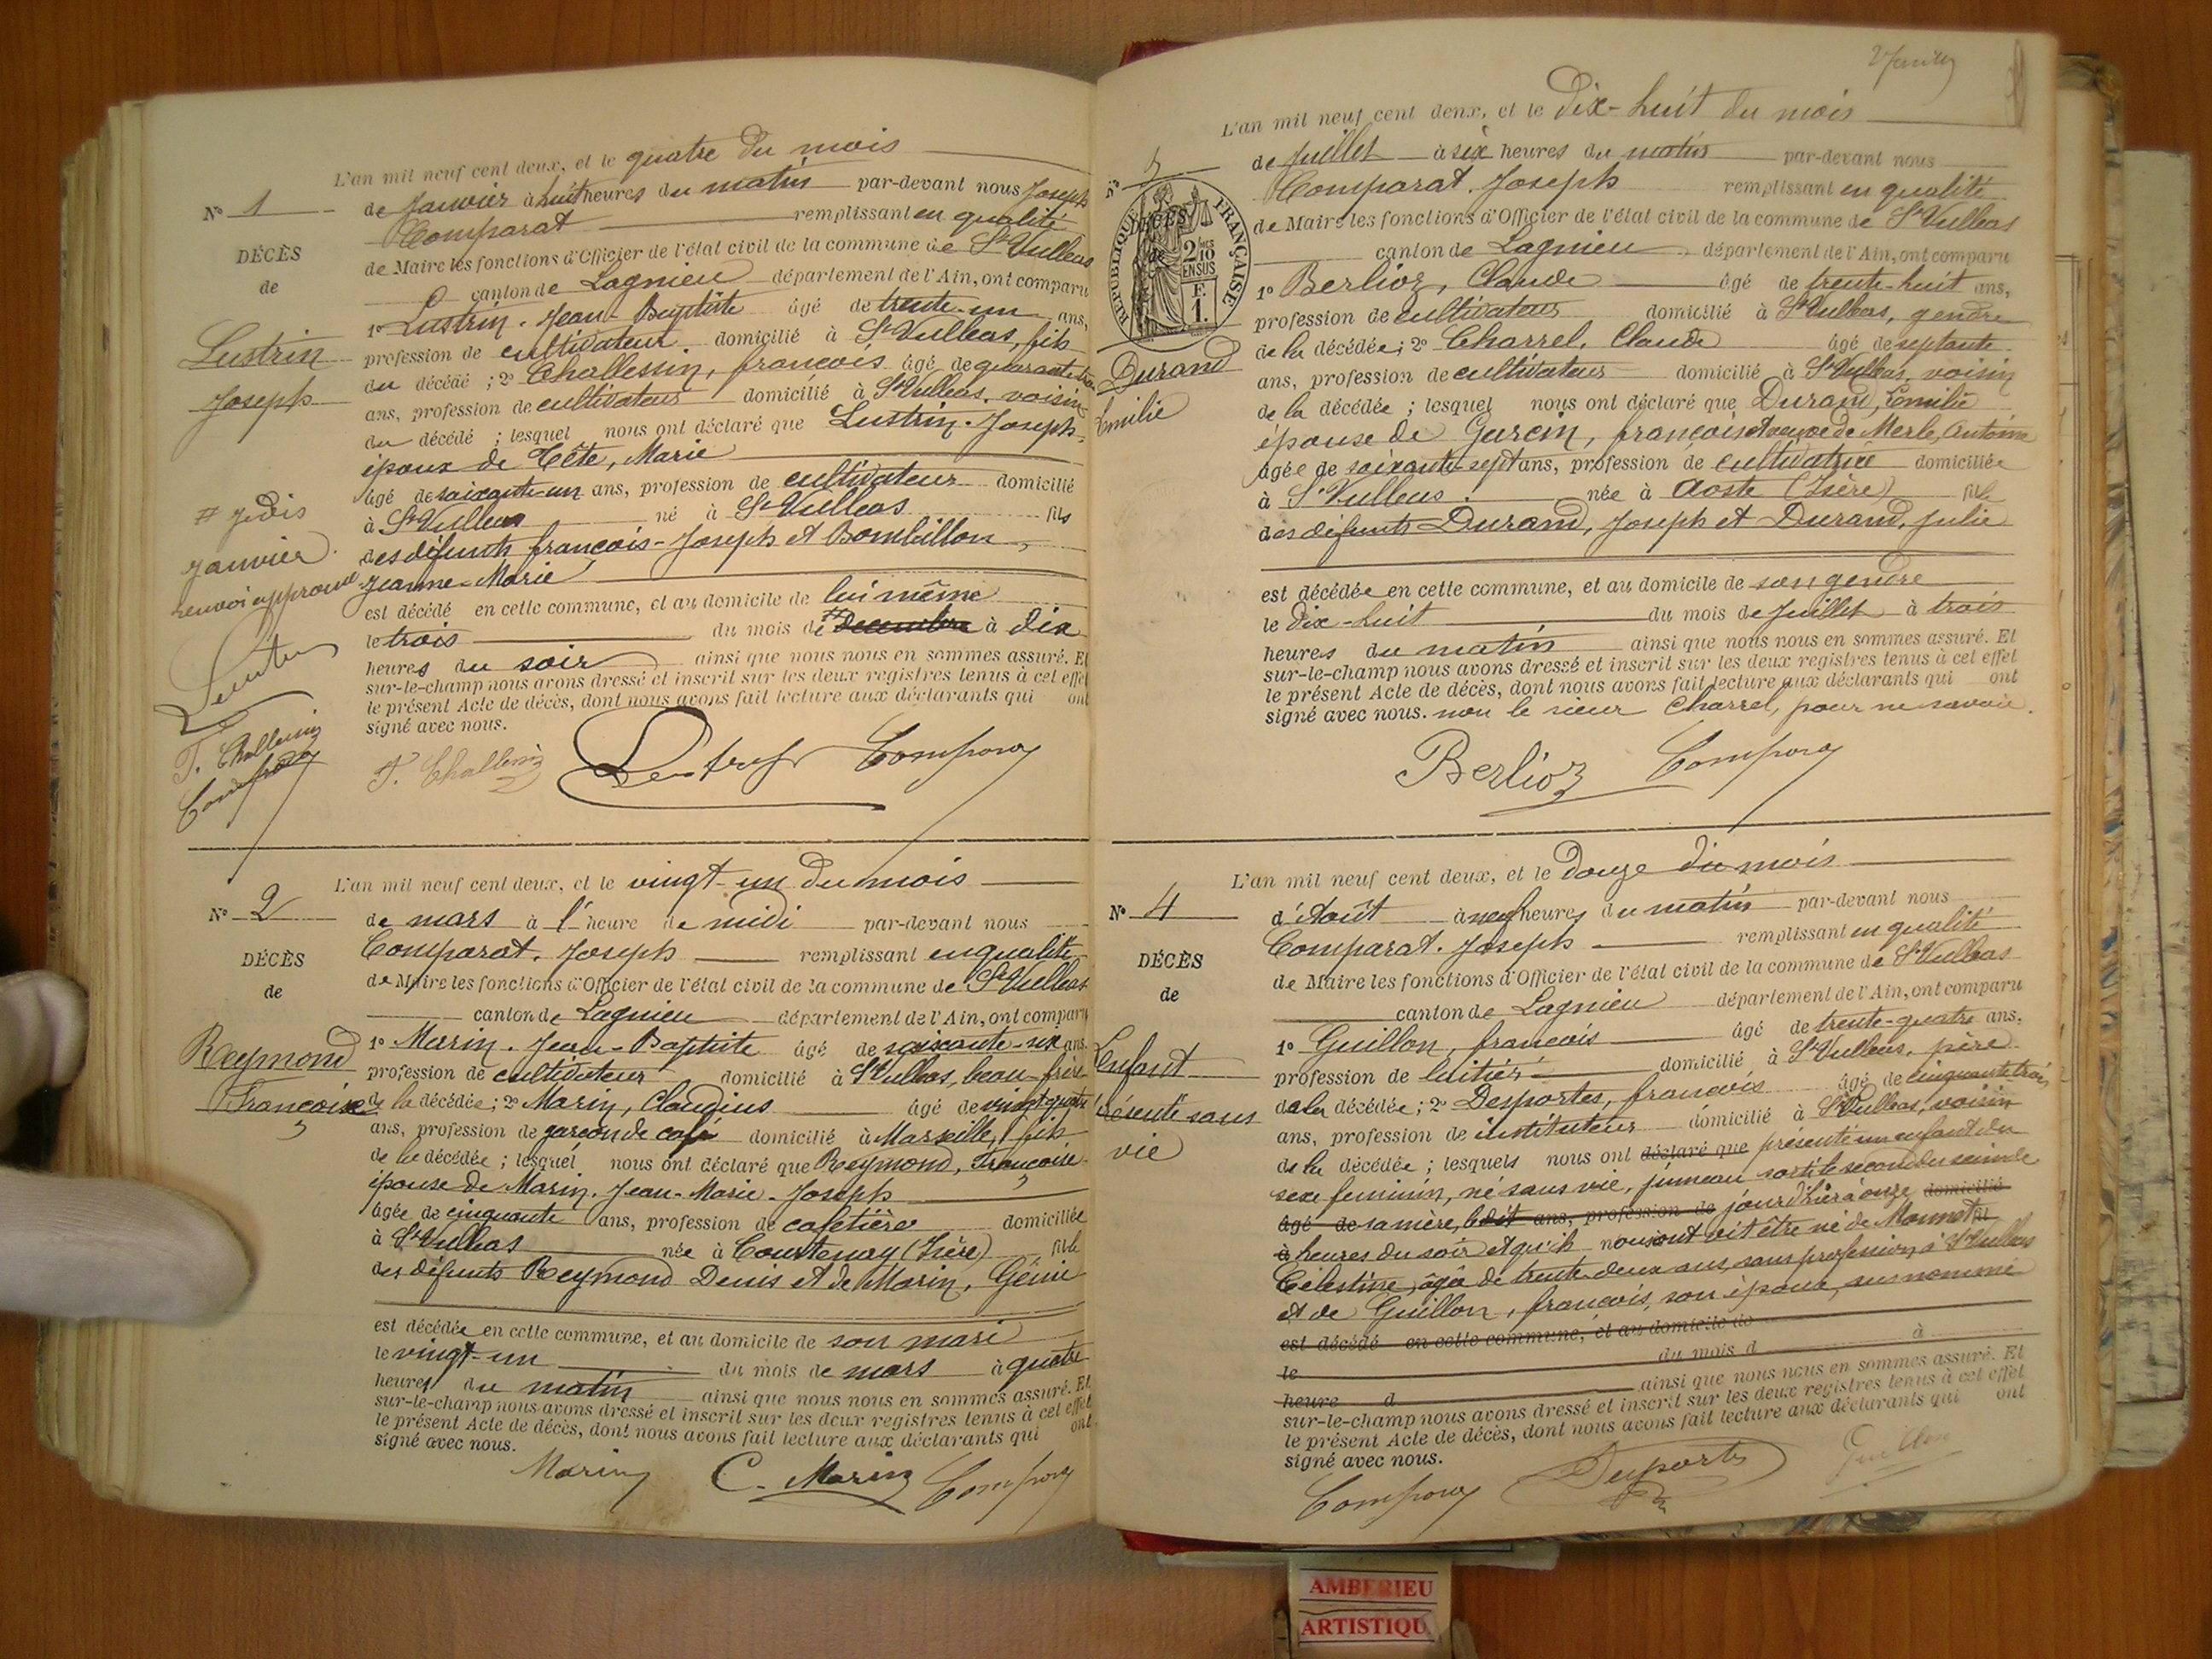 L'an mil neuf cent deux, et le quatre du mois
de Janvier à huit heures du matin par-devant nous Joseph
Comparat remplissant en qualité
de Maire les fonctions d'Officier de l'état civil de la commune de St Vulbas
canton de Lagnieu département de l'Ain, ont comparu
1º Lustrin. Jean-Baptiste âgé de trente-un ans,
profession de cultivateur domicilié à St Vulbas, fils
du décédé ; 2º Challessin, françois âgé de quarante-
ans, profession de cultivateur domicilié à St Vulbas, voisin
du décédé ; lesquel nous ont déclaré que Lustrin. Joseph
époux de Tête, Marie
âgé de soixante-un ans, profession de cultivateur domicilié
à St Vulbas né à St Vulbas fils
des défunts françois-Joseph et Bombillon
Jeanne-Marie
est décédé en cette commune, et au domicile de lui même
le trois du mois de # decembre à dix
heures du soir ainsi que nous nous en sommes assuré. Et
sur-le-champ nous avons dressé et inscrit sur les deux registres tenus à cet effet
le présent Acte de décès, dont nous avons fait lecture aux déclarants qui ont
signé avec nous.
Nº 1
DÉCÈS
de
Lustrin
Joseph
# Janvier
renvoi approuvé
F. Challessin
Nº 2
DÉCÈS
de
Reymond
Françoise
L'an mil neuf cent deux, et le vingt-un du mois
de mars à l' heure de midi par-devant nous
Comparat. Joseph remplissant en qualité
de Maire les fonctions d'Officier de l'état civil de la commune de St Vulbas
canton de Lagnieu département de l'Ain, ont comparu
1º Marin. Jean-Baptiste âgé de soixante-six ans
profession de cultivateur domicilié à St Vulbas, beau-frère
de la décédée ; 2º Marin, Claudius âgé de vingt quatre
ans, profession de garçon de café domicilié à Marseille, fils
de la décédée ; lesquel nous ont déclaré que Reymond, Françoise
épouse de Marin. Jean-Marie-Joseph
âgée de cinquante ans, profession de cafetière domiciliée
à St Vulbas née à Courtenay (Isère) fille
des défunts Reymond Denis et de Marin, Génie
est décédée en cette commune, et au domicile de son mari
le vingt-un du mois de mars à quatre
heures du matin ainsi que nous nous en sommes assuré. Et
sur-le-champ nous avons dressé et inscrit sur les deux registres tenus à cet effet
le présent Acte de décès, dont nous avons fait lecture aux déclarants qui ont
signé avec nous.
Marin C. Marin
L'an mil neuf cent deux, et le Dix-huit du mois
de Juillet à six heures du matin par-devant nous
Comparat. Joseph remplissant en qualité
de Maire les fonctions d'Officier de l'état civil de la commune de St Vulbas
canton de Lagnieu département de l'Ain, ont comparu
1º Berlioz, Claude âgé de trente-huit ans,
profession de cultivateur domicilié à St Vulbas, gendre
de la décédée ; 2º Charrel, Claude âgé de septante
ans, profession de cultivateur domicilié à St Vulbas, voisin
de la décédée ; lesquel nous ont déclaré que Durand, Emilie
épouse de Garcin, françois et veuve de Merle, Antoine
âgée de soixante-sept ans, profession de cultivatrice domiciliée
à St Vulbas née à Aoste (Isère) fille
des défunts Durand, Joseph et Durand, Julie
est décédée en cette commune, et au domicile de son gendre
le dix-huit du mois de Juillet à trois
heures du matin ainsi que nous nous en sommes assuré. Et
sur-le-champ nous avons dressé et inscrit sur les deux registres tenus à cet effet
le présent Acte de décès, dont nous avons fait lecture aux déclarants qui ont
signé avec nous. non le sieur Charrel, pour ne savoir.
Berlioz
Nº
DÉCÈS
de
RÉPUBLIQUE FRANÇAISE
2/10
EN SUS
F.
1.
Durand
Emilie
Nº 4
DÉCÈS
de
Enfant
présenté sans
vie
L'an mil neuf cent deux, et le Douze du mois
d'Août à neuf heures du matin par-devant nous
Comparat. Joseph remplissant en qualité
de Maire les fonctions d'Officier de l'état civil de la commune de St Vulbas
canton de Lagnieu département de l'Ain, ont comparu
1º Guillon, françois âgé de trente-quatre ans,
profession de laitier domicilié à St Vulbas, père
de la décédée ; 2º Desportes, françois âgé de cinquante trois
ans, profession de instituteur domicilié à St Vulbas, voisin
de la décédée ; lesquels nous ont déclaré que présenté un enfant du
sexe feminin, né sans vie, jumeau sorti le second du sein de
âgé de sa mère, ledit ans, profession de jour d'hier à onze domicilié
à heures du soir et qu'ils nous ont dit être né de Monnet
Célestine, âgée de trente-deux ans, sans profession, à St Vulbas
et de Guillon, françois, son époux, susnommé
est décédé en cette commune, et au domicile de
le du mois d à
heure d ainsi que nous nous en sommes assuré. Et
sur-le-champ nous avons dressé et inscrit sur les deux registres tenus à cet effet
le présent Acte de décès, dont nous avons fait lecture aux déclarants qui ont
signé avec nous.
Guillon
AMBERIEU
ARTISTIQU